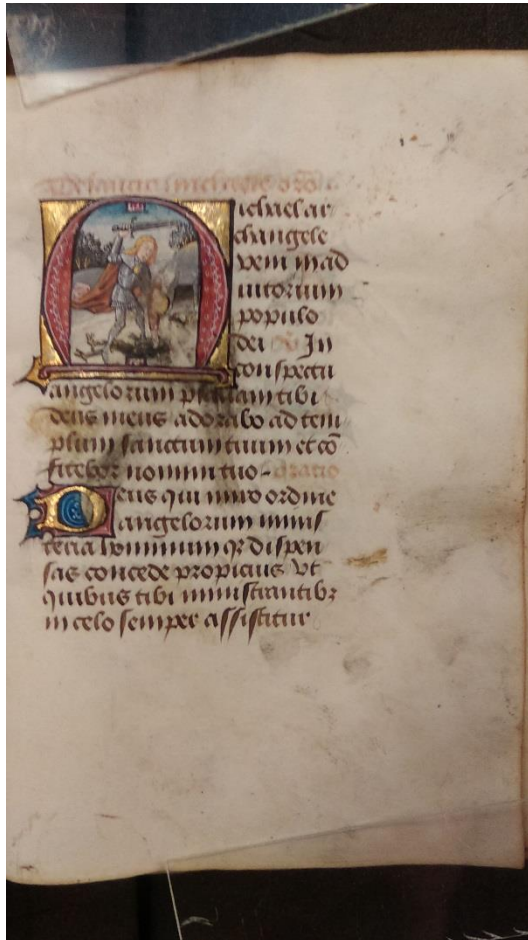 De sancto michaele oro
Michael ar
changele
veni in ad
iutorium
populo
dei In
conspectu
angelorum psallam tibi
deus meus adorabo ad tem
plum sanctum tuum et co͂
fitebor nomini tuo Oratio
Deus qui miro ordine
angelorum minis
teria hominum qꝫ dispen
sas concede propicius vt
quibus tibi ministrantibꝫ
in celo semper assistitur